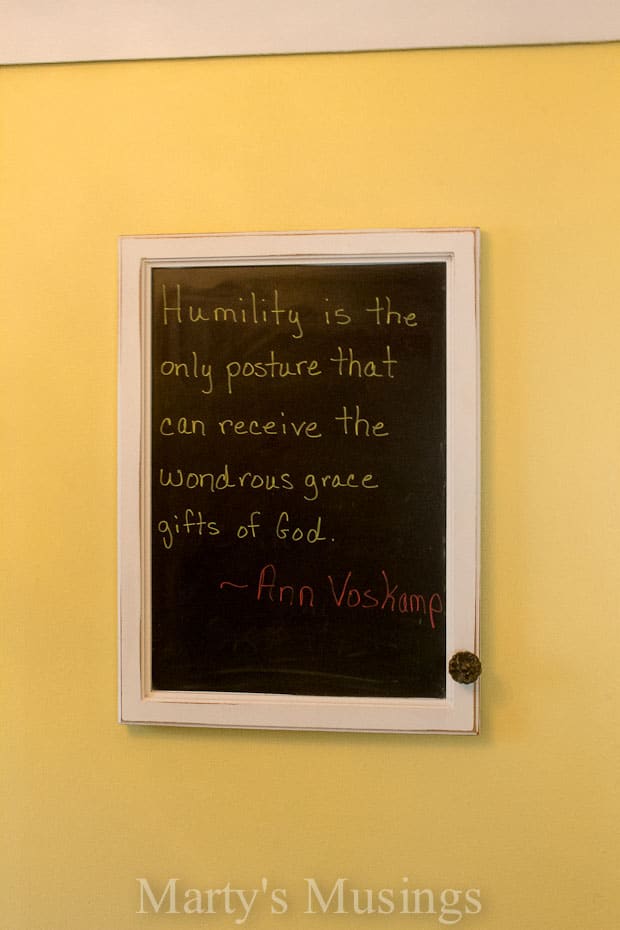 Humility is the
only posture that
can receive the
wondrous grace
gifts of God.
~Ann Voskamp
Marty's Musings